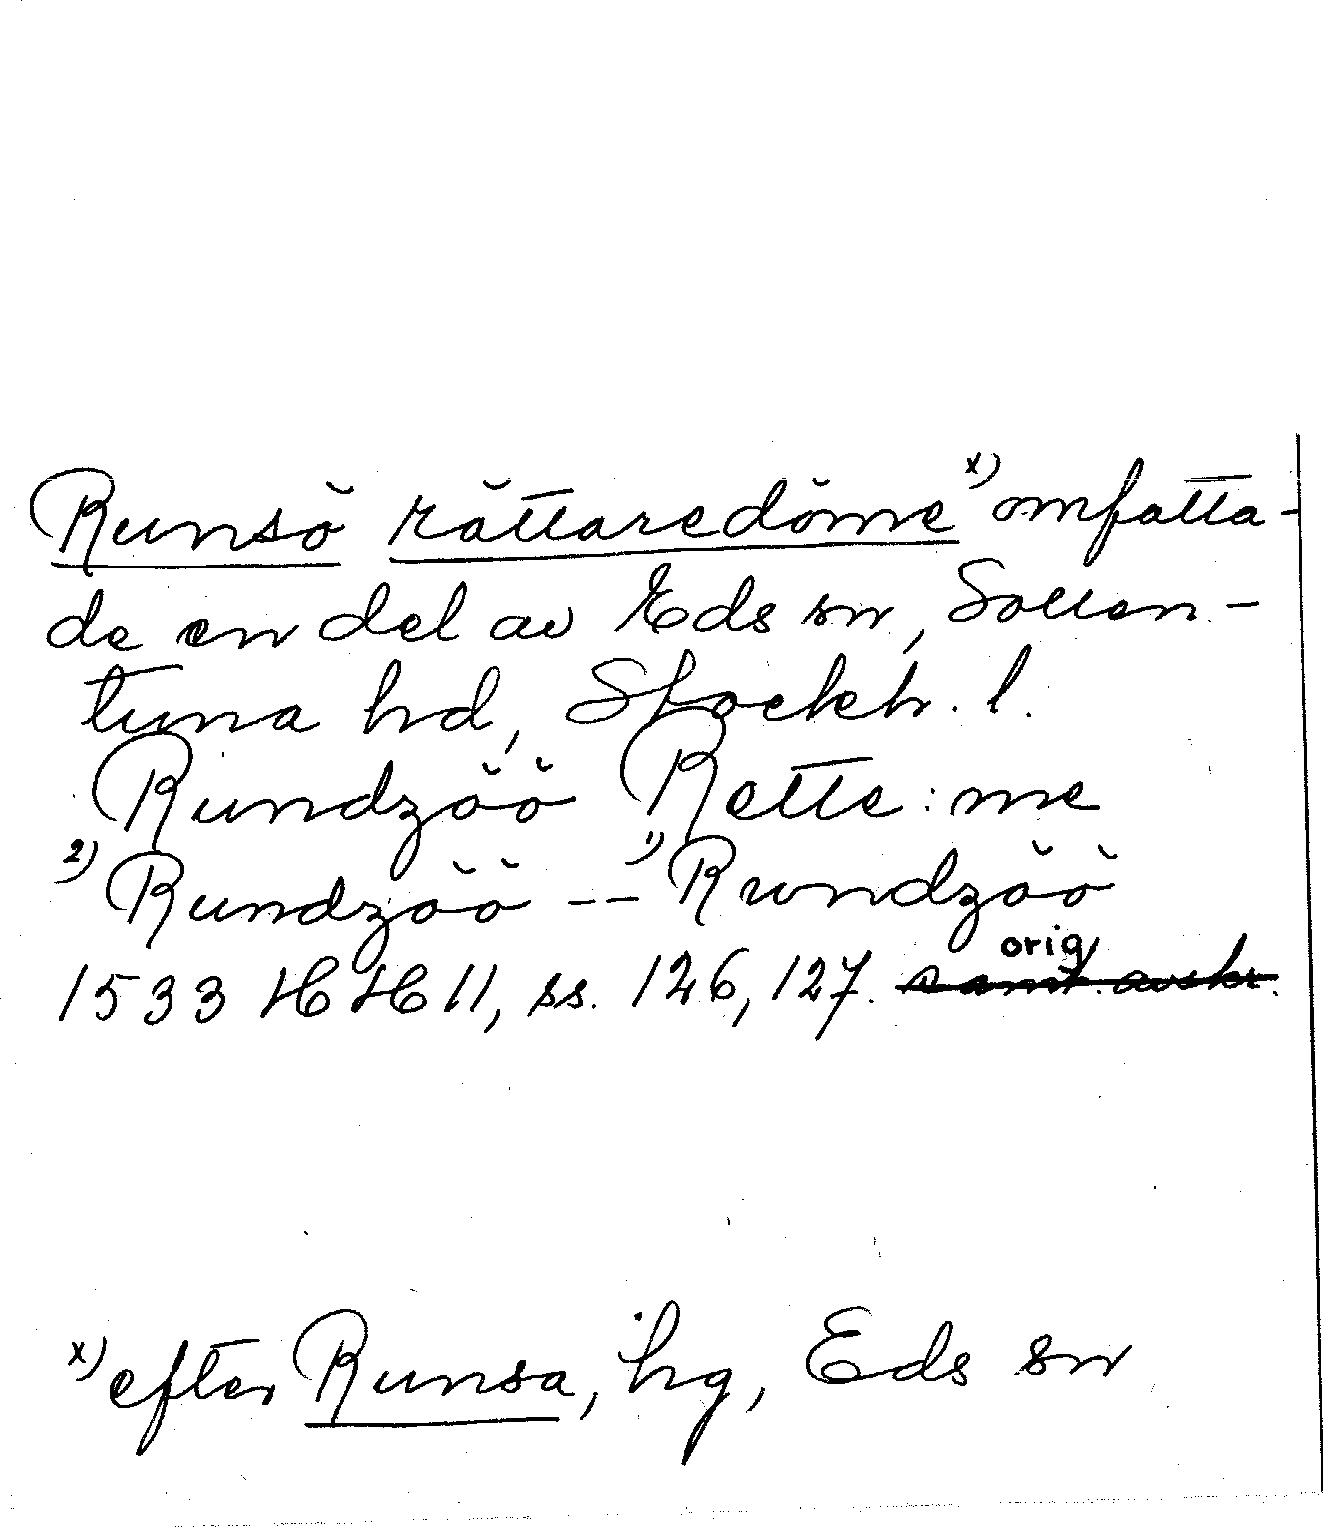 Runsö rättaredöme x) omfatta-
de en del av Eds sn, Sollen-
tuna hd, Stockh. l.
Rundzöö Rette:me
2) Rundzöö -- 1) Rundzöö
orig
1533 HH 11, ss. 126, 127. samt. avskr.
x) efter Runsa, hg, Eds sn